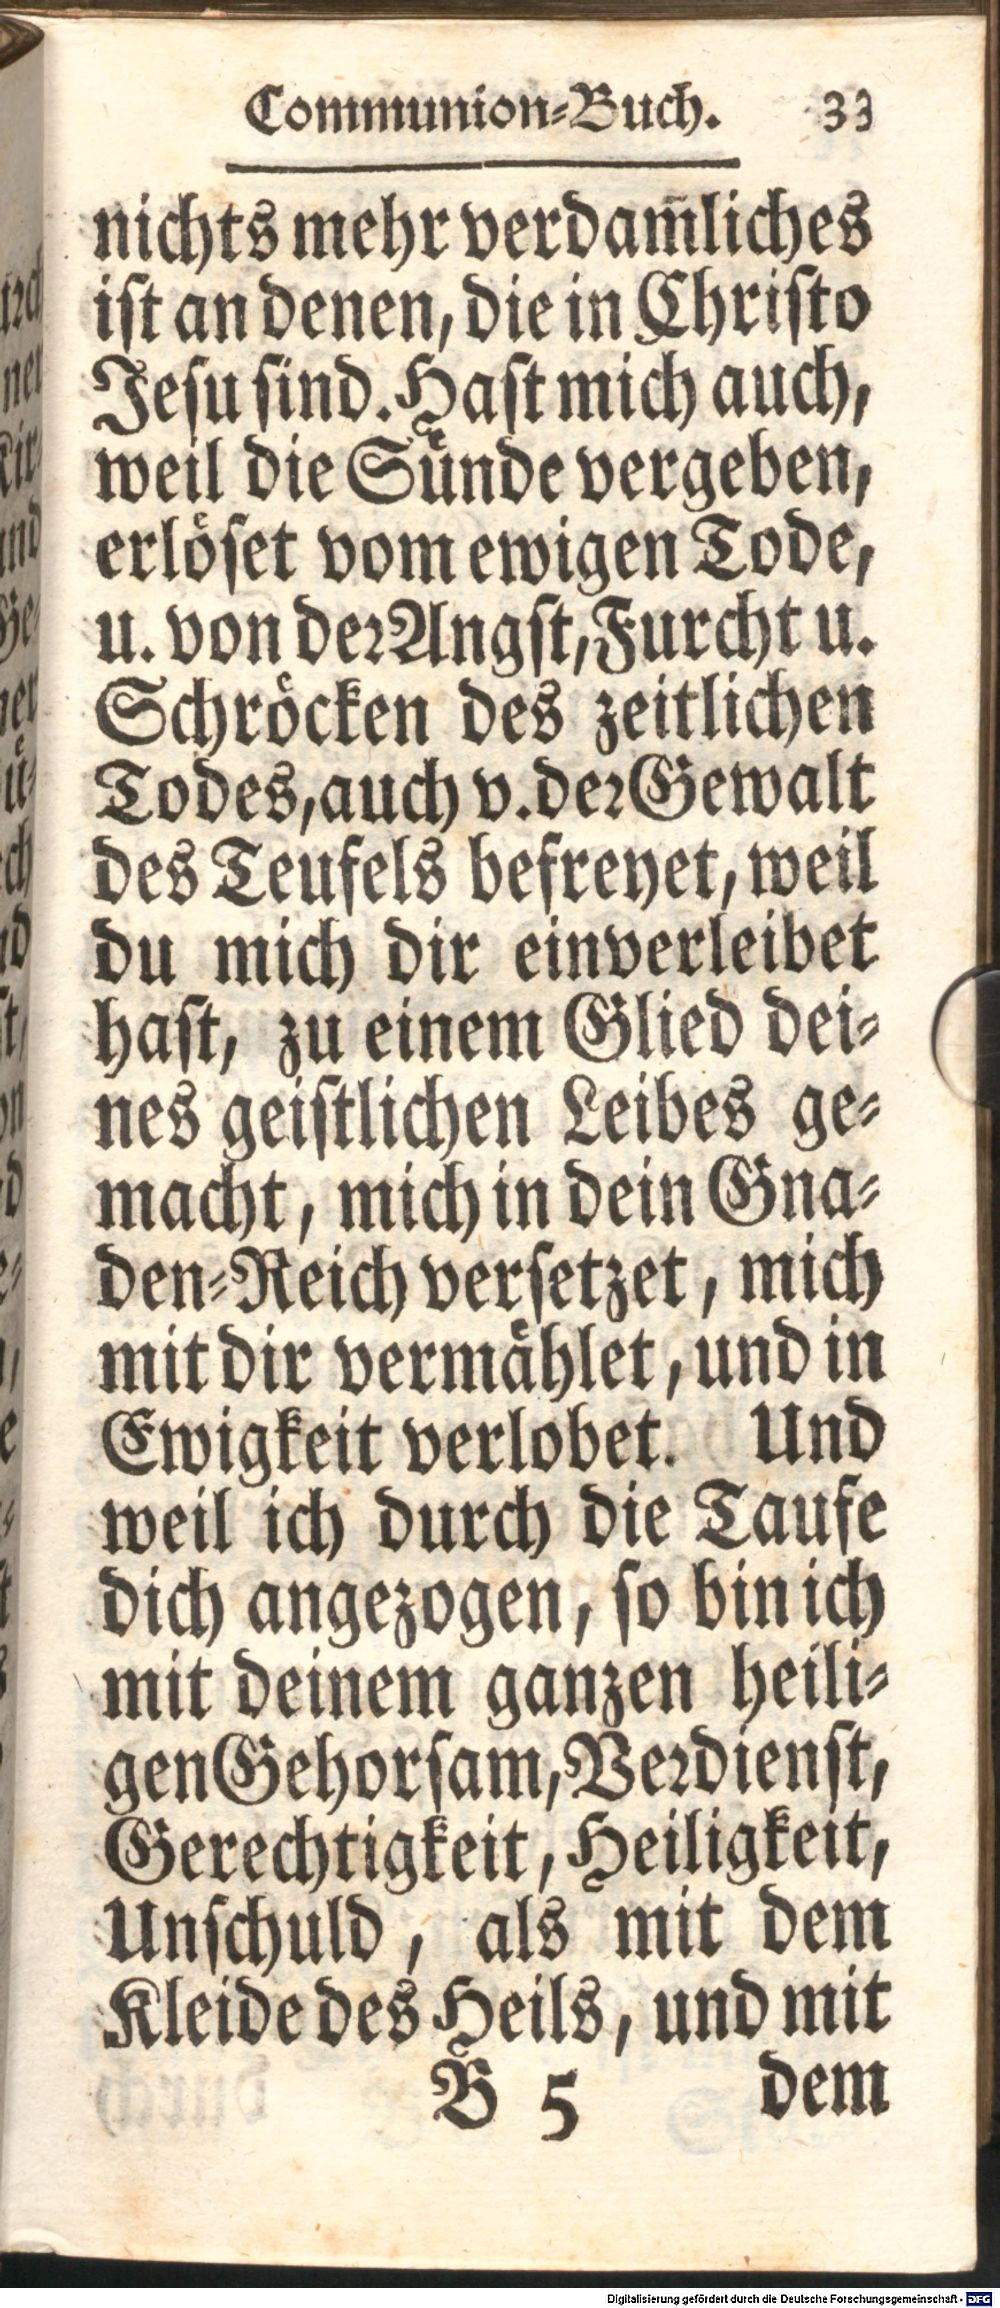 Communion-Buch. 33
nichts mehr verdam̃liches
iſt an denen, die in Chriſto
Jeſu ſind. Haſt mich auch,
weil die Suͤnde vergeben,
erloͤſet vom ewigen Tode,
u. von der Angſt, Furcht u.
Schroͤcken des zeitlichen
Todes, auch v. der Gewalt
des Teufels befreyet, weil
du mich dir einverleibet
haſt, zu einem Glied dei-
nes geiſtlichen Leibes ge-
macht, mich in dein Gna-
den-Reich verſetzet, mich
mit dir vermaͤhlet, und in
Ewigkeit verlobet. Und
weil ich durch die Taufe
dich angezogen, ſo bin ich
mit deinem ganzen heili-
gen Gehorſam, Verdienſt,
Gerechtigkeit, Heiligkeit,
Unſchuld, als mit dem
Kleide des Heils, und mit
B 5 dem
Digitalisierung gefördert durch die Deutsche Forschungsgemeinschaft - DFG